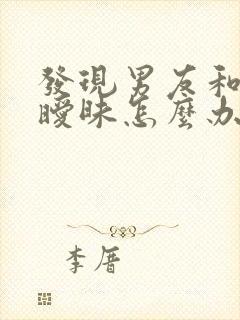 發現男友和
曖昧怎麼办
李厝